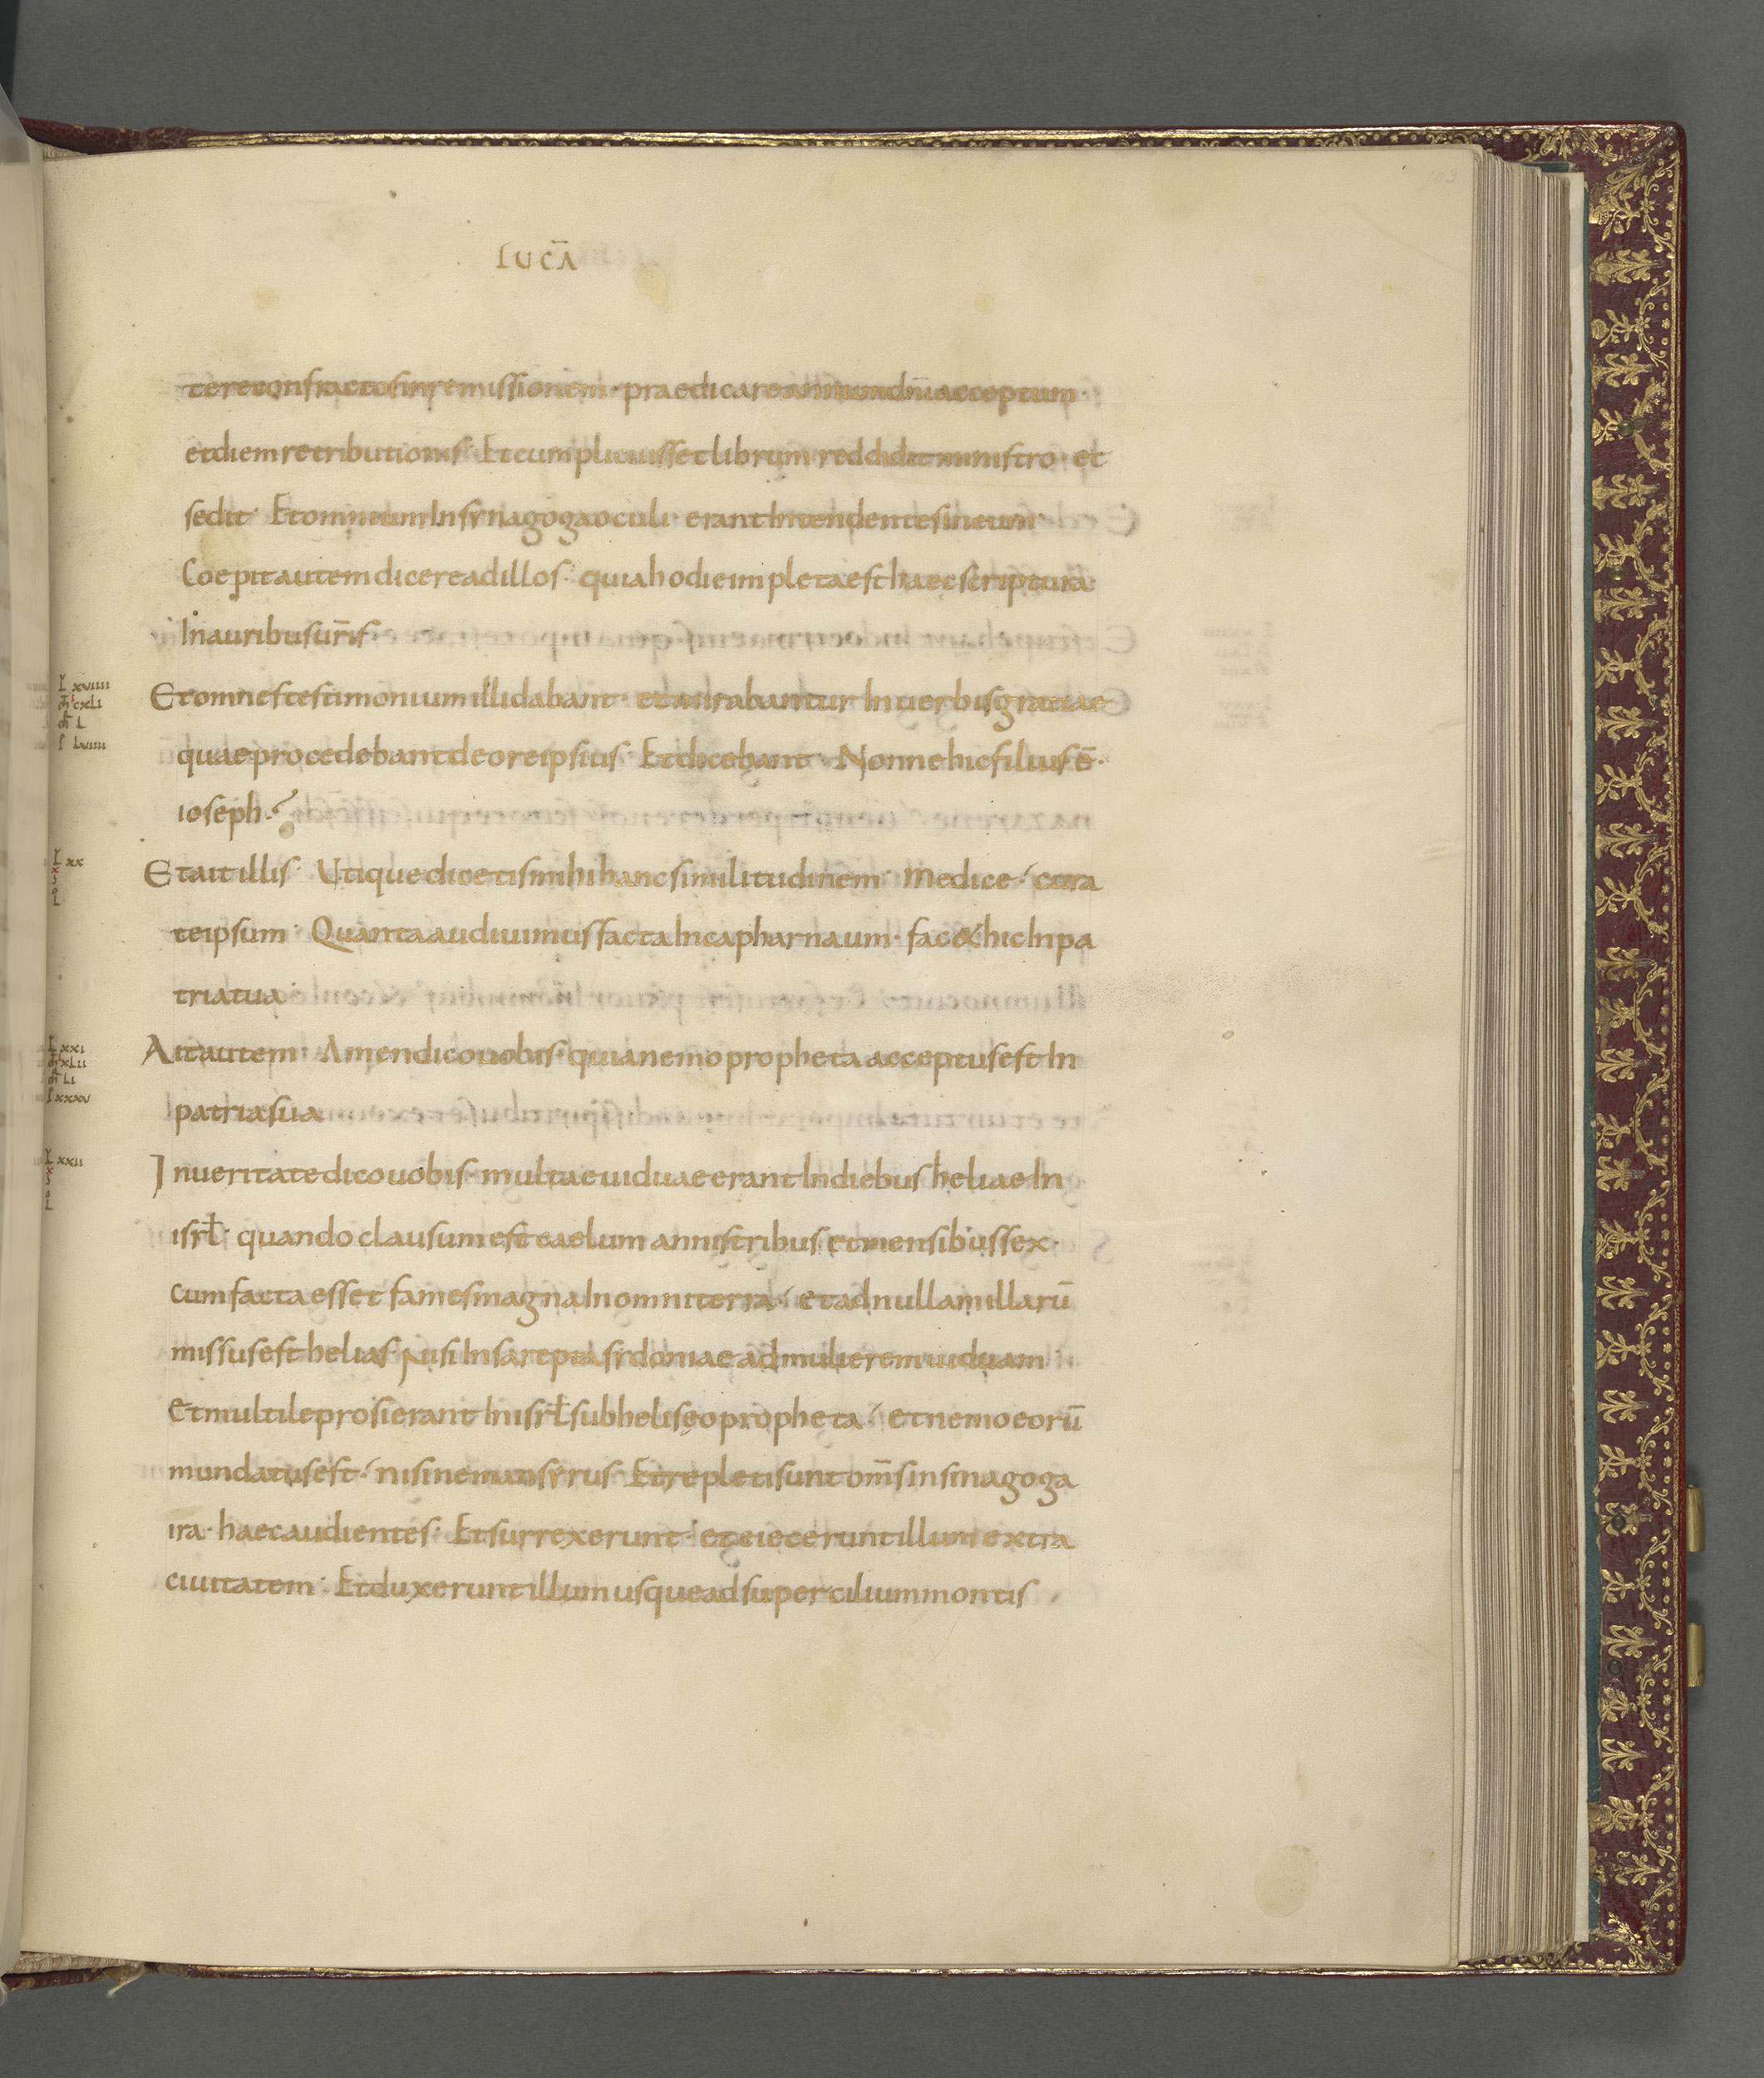 LUCĀ
103
tere confractos in remissionem · praedicare annum dn̄i acceptum ·
et diem retributionis · Et cum plicuisset librum reddidit ministro · et
sedit · Et omnium In synagoga oculi · erant Intendentes in eum ·
Coepit autem dicere ad illos · quia hodie impleta est haec scriptura
In auribus ur̄is ·
L xviiii
m̄ cxli
m̄ L
I Lviiii
Et omnes testimonium illi dabant · et mirabantur In uerbis gratiae
quae procedebant de ore ipsius · Et dicebant · Nonne hic filius ē ·
ioseph ·
L xx
x
L
Et ait illis · Utique dicetis mihi hanc similitudinem · Medice · cura
te ipsum · Quanta audiuimus facta In capharnaum · fac & hic In pa
tria tua ·
L xxi
m̄ cxlii
m̄ Li
I xxxv
Ait autem · Amen dico uobis · quia nemo propheta acceptus est In
patria sua
L xxii
x
L
In ueritate dico uobis · multae uiduae erant In diebus heliae In
isrł · quando clausum est caelum annis tribus et mensibus sex ·
cum facta esset fames magna In omni terra · et ad nullam illarū
missus est helias · nisi In sarepta sydoniae ad mulierem uiduam
Et multi leprosi erant In isrł sub heliseo propheta · et nemo eorū
mundatus est · nisi neman syrus · Et repleti sunt om̄s in sinagoga
ira · haec audientes · Et surrexerunt · et eiecerunt illum extra
ciuitatem · Et duxerunt illum usque ad supercilium montis